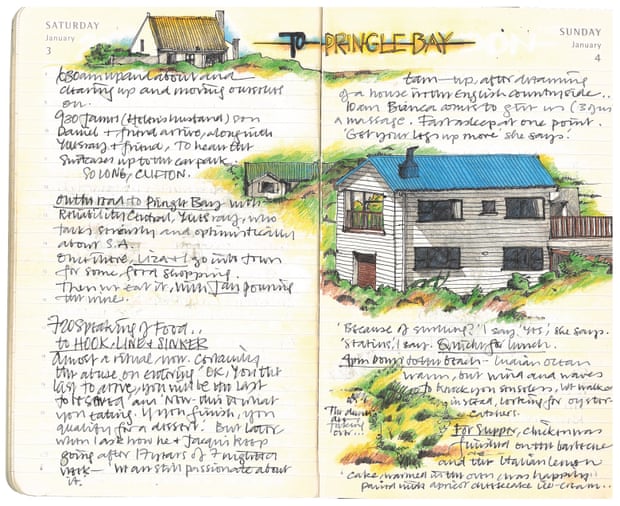 SATURDAY
January
3
TO PRINGLE BAY
6.30am up and about and
clearing up and moving ourselves
on.
9.30 James (Helen's husband), son
Daniel + friend arrive, along with
+ friend, to heave the
suitcases up to the car park.
SO LONG, CLIFTON.
on the road to Pringle Bay with
Reliability Central, who
talks sensibly and optimistically
about S.A.
Once there, Liza + I go into town
for some food shopping.
Then we eat it, with Jan pouring
the wine.
7.20 Speaking of Food..
to HOOK, LINE + SINKER
Almost a ritual now. Containing
the abuse, on entering 'OK, you the
last to arrive, you will be the last
to be served' and 'Now this is what
you eating. If you finish, you
qualify for a dessert.' But later
when I ask how he + Jacqui keep
going after 17 years of 7 nights a
week – 'We am still passionate about
it.'
SUNDAY
January
4
7am – up, after dreaming
of a house in the English countryside..
10am Bianca comes to give us (3) gins
a massage. Fast asleep at one point.
'Get your legs up more' she says.
'Because of smiling?' I say. 'Yes', she says.
'Statins', I say. for lunch.
4pm Down to the beach – Indian Ocean
warm, but wind and waves
to knock you senseless, so walk
instead, looking for oyster-
catchers.
For Supper, chicken was
finished on the barbecue
and the Italian lemon
cake, warmed in the oven was happily
paired with apricot cheesecake ice-cream..